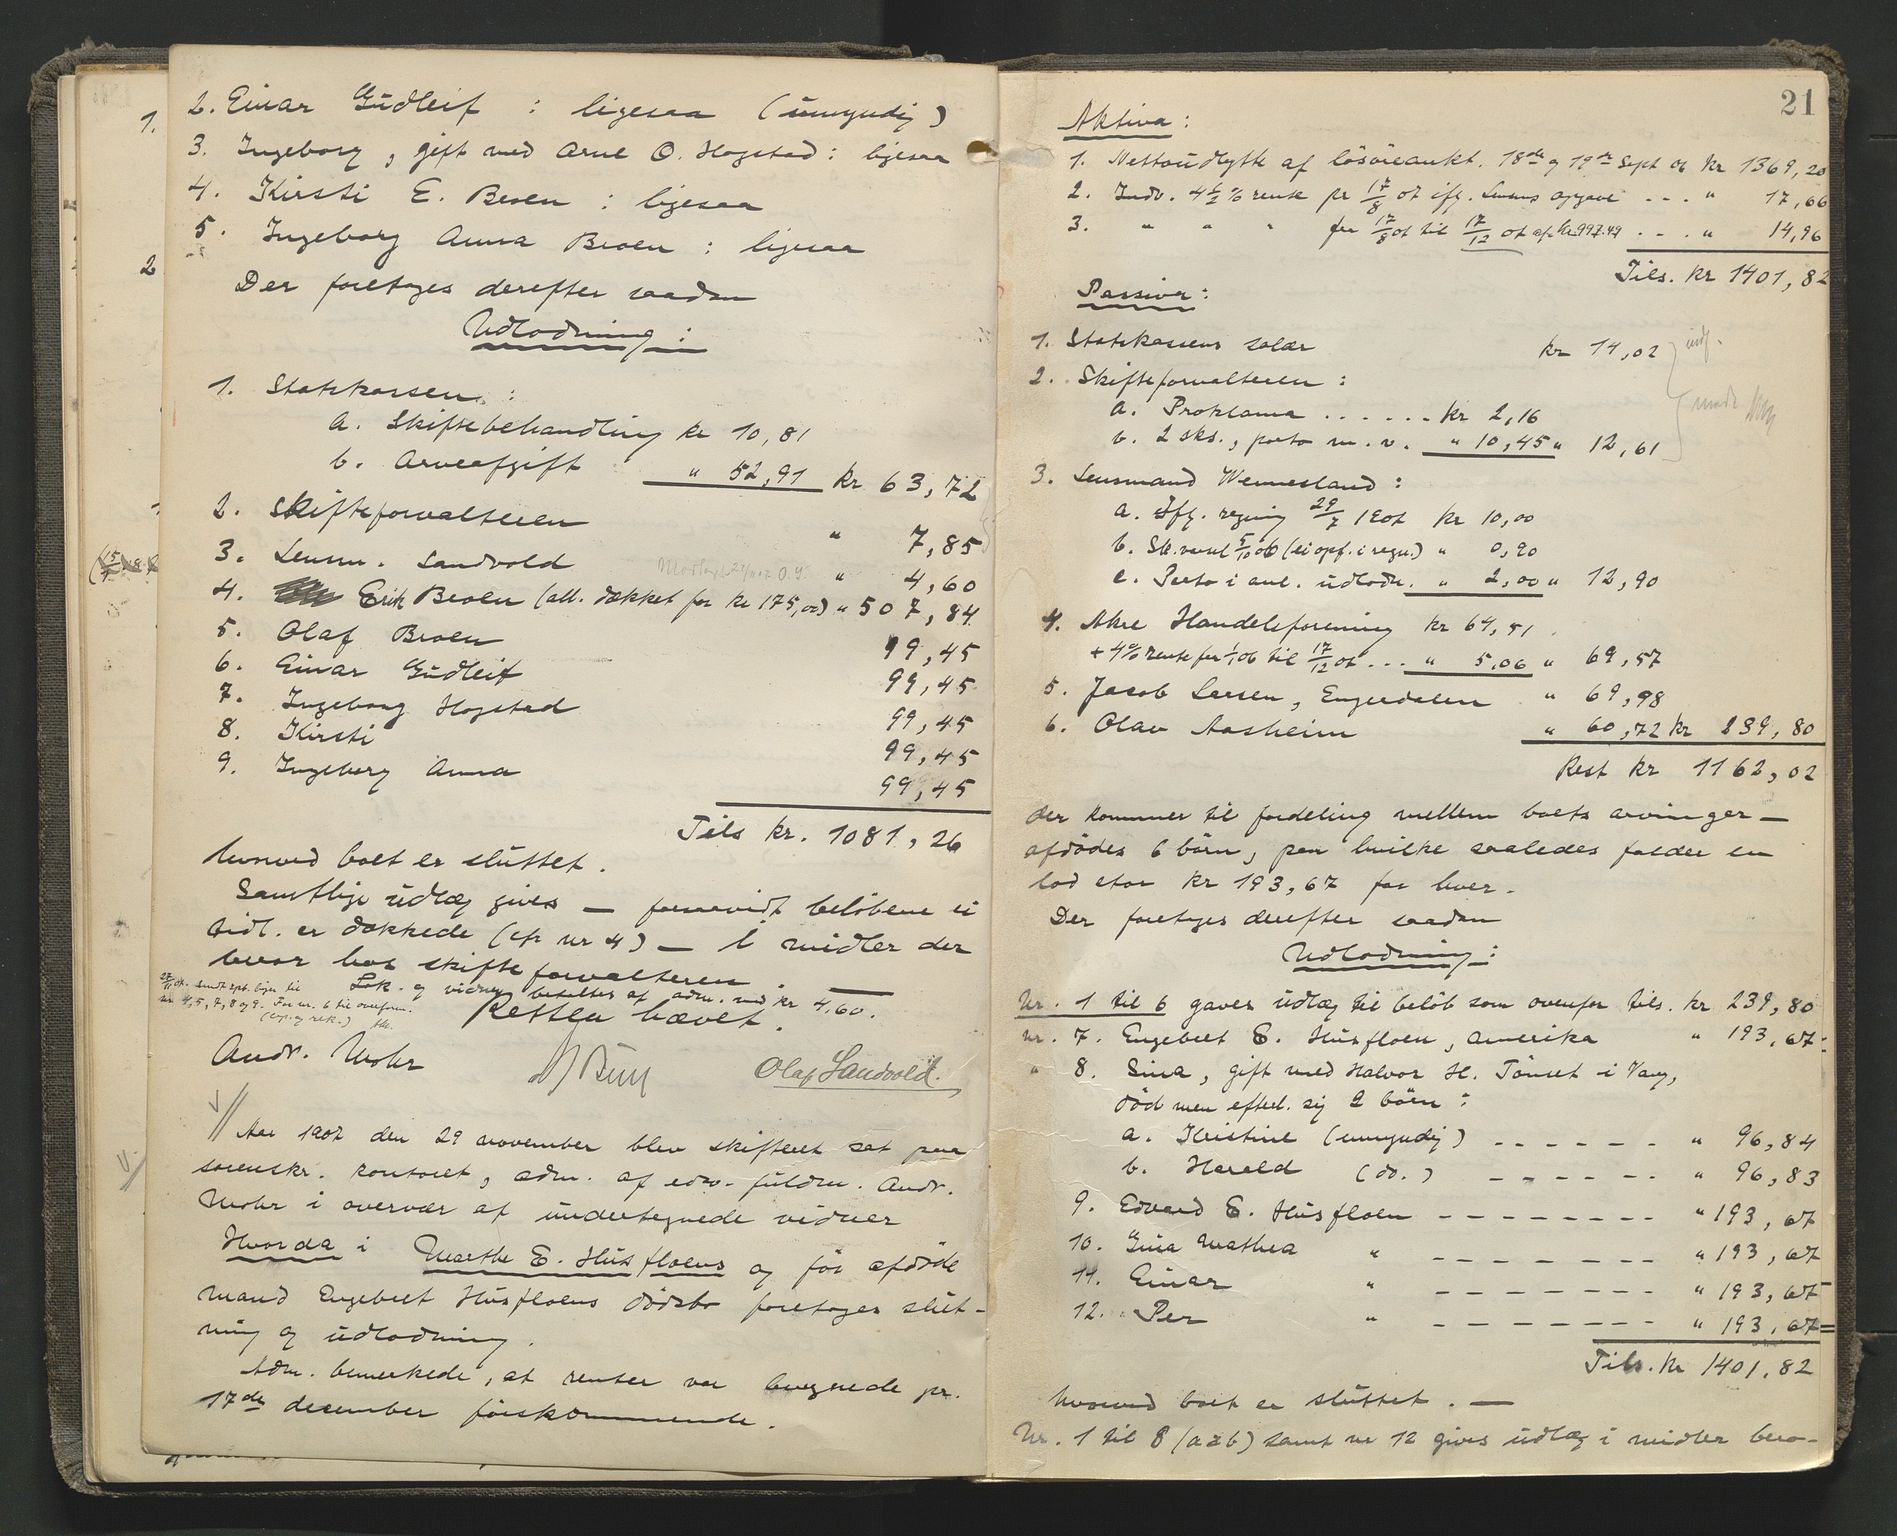 2. Einar Gudleif : ligesaa (umyndig)
3. Ingeborg, gift med Arne O. Hogstad : ligesaa
4. Kirsti E. Broen : ligesaa
5. Ingeborg Anna Broen : ligesaa
Der foretoges derefter saadan
Udlodning :
1. Statskassen :
a. Skiftebehandling kr 10,81
b. Arveafgift " 52,91 kr 63,72
2. Skifteforvalteren " 7,85
3. Lensm. Sandvold " 4,60
4. Erik Broen (all. dækket for kr 175,00) " 507,84
5. Olaf Broen 99,45
6. Einar Gudleif 99,45
7. Ingeborg Hogstad 99,45
8. Kirsti 99,45
9. Ingeborg Anna 99,45
Tils kr. 1081,26
hvorved boet er sluttet.
Samtlige udlæg gives — forsaavidt beløbene ei
tidl. er dækkede (cfr nr 4) — i midler der
beror hos skifteforvalteren.
Lok. og vidner betaltes af adm. med kr 4,60.
Retten hævet.
Andr. Mohr
Olaf Sandvold.
Aar 1907 den 29 november blev skifteret sat paa
sorenskr. kontoret, adm. af edsv. fuldm. Andr.
Mohr i overvær af undertegnede vidner
Hvorda i Marthe E. Husfloens og før afdøde
mand Engebret Husfloens dødsbo foretoges slut-
ning og udlodning.
Adm. bemerkede, at renter var beregnede pr.
17de december førstkommende.
21
Aktiva :
1. Nettoudbytte af løsøreaukt. 18de og 19de Sept 06 kr 1369,20
2. Indv. 4½ % rente pr 17/8 07 ifg. Lensms opgave - - - " 17,66
3. " " " fra 17/8 07 til 17/12 07 af kr 997.49 - - - " 14,96
Tils. kr 1401,82
Passiva :
1. Statskassens salær kr 14,02
2. Skifteforvalteren :
a. Proklama - - - - - - kr 2,16
b. 2 sks., porto m. v. " 10,45 " 12,61
3. Lensmand Wennesland :
a. Ifg. regning 29/7 1907 kr 10,00
b. Sk.varsel 5/10 06 (ei opf. i regn.) " 0,90
c. Porto i anl. udlodn. " 2,00 " 12,90
4. Akre Handelsforening kr 64,51
+ 4% rente fra 1/1 06 til 17/12 07 - - - " 5,06 " 69,57
5. Jacob Larsen, Engerdalen " 69,98
6. Olav Aasheim " 60,72 kr 239,80
Rest kr 1162,02
der kommer til fordeling mellem boets arvinger —
afdødes 6 børn, paa hvilke saaledes falder en
lod stor kr 193,67 for hver.
Der foretoges derefter saadan
Udlodning :
Nr. 1 til 6 gaves udlæg til beløb som ovenfor tils. kr 239,80
nr. 7. Engebret E. Husfloen, Amerika " 193,67
" 8. Sina, gift med Halvor H. Tønset i Vang,
død men efterl. sig 2 børn :
a. Kristine (umyndig) - - - - - - " 96,84
b. Harald (do.) - - - - - - " 96,83
9. Edvard E. Husfloen - - - - - - - - " 193,67
10. Gina Mathea " - - - - - - - - " 193,67
11. Einar " - - - - - - - - " 193,67
12. Per " - - - - - - - - " 193,67
Tils. kr 1401,82
hvorved boet er sluttet. —
Nr. 1 til 8 (a & b) samt nr 12 gives udlæg i midler bero-